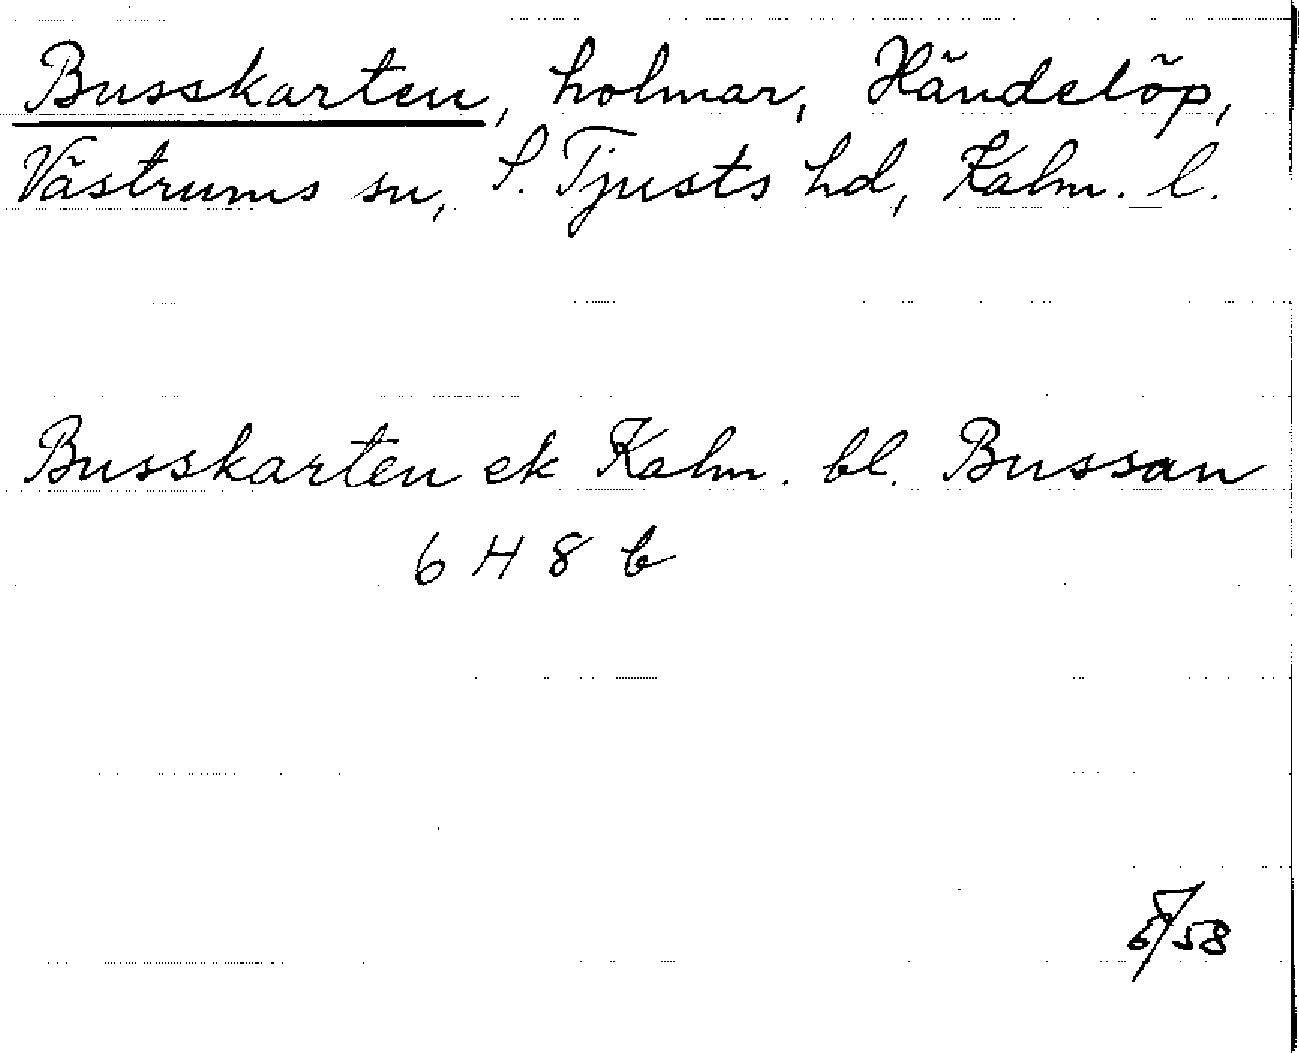 Busskarten, holmar, Händelöp,
Västrums sn, S. Tjusts hd, Kalm. l.
Busskarten ek Kalm. bl. Bussan
6 H 8 b
58